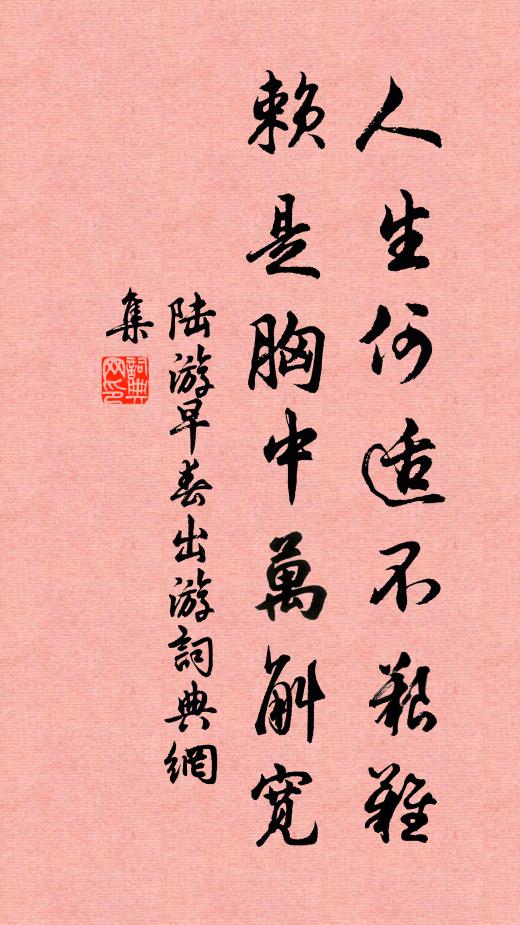 人生何适不艱難
賴是胸中萬斛寬
陆游早春出游詞典網
集
詞典
网印